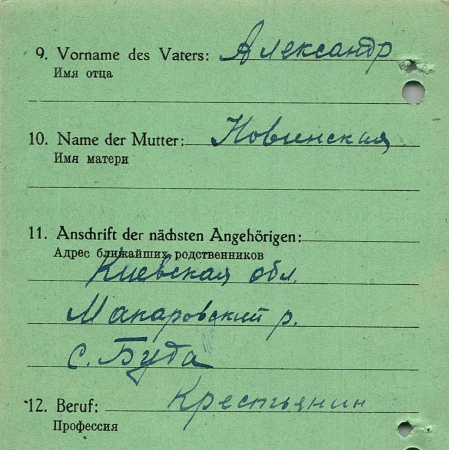 9. Vorname des Vaters: Александр
Имя отца
10. Name der Mutter: Новинская
Имя матери
11. Anschrift der nächsten Angehörigen:
Адрес ближайших родственников
Киевская обл.
Макаровский р.
с. Буда
12. Beruf: Крестьянин
Профессия